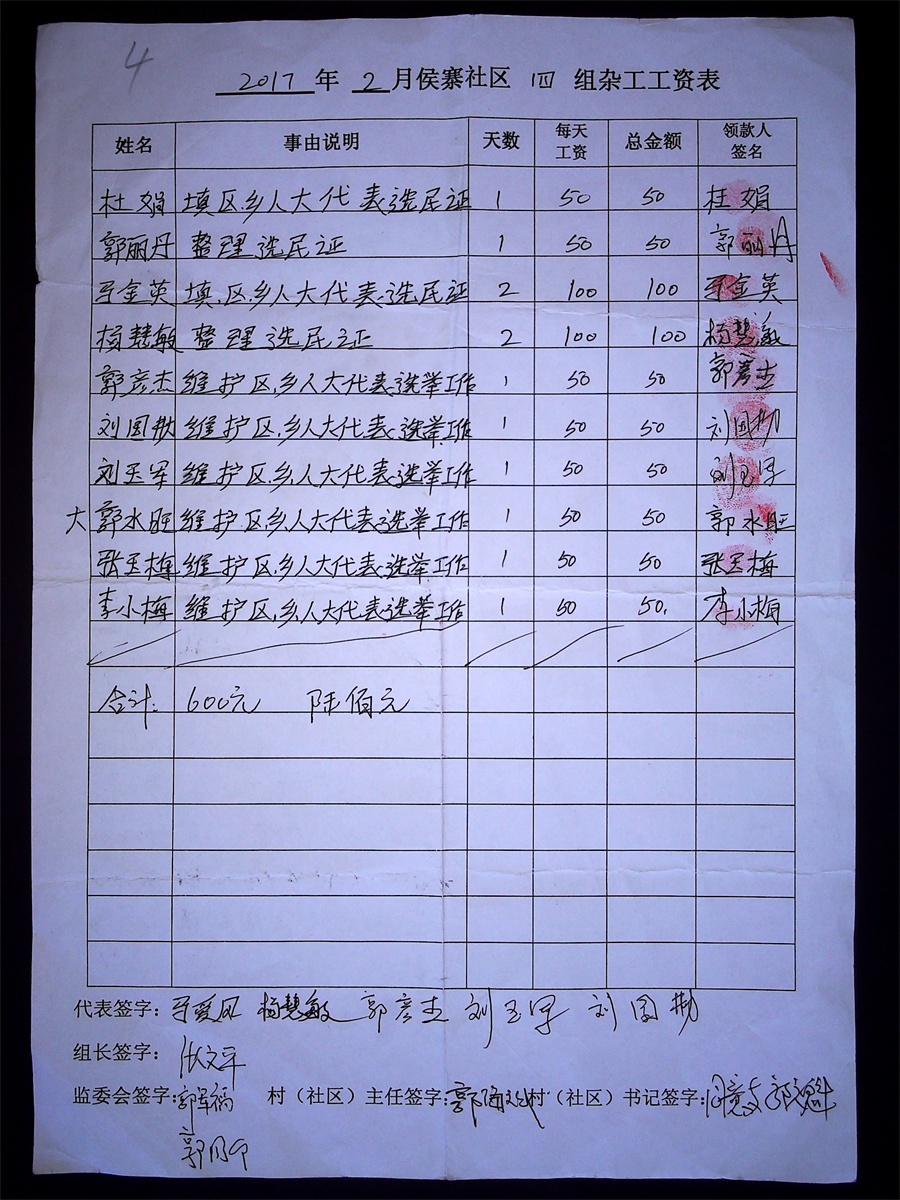 4
2017 年 2 月侯寨社区 四 组杂工工资表
姓名 事由说明 天数 每天工资 总金额 领款人签名
杜娟 填区.乡人大代表选民证 1 50 50 杜娟
郭丽丹 整理选民证 1 50 50 郭丽丹
于金英 填.区.乡人大代表选民证 2 100 100 于金英
杨慧敏 整理选民证 2 100 100 杨慧敏
郭彦杰 维护区.乡人大代表选举工作 1 50 50 郭彦杰
刘国彬 维护区.乡人大代表选举工作 1 50 50 刘国彬
刘玉军 维护区.乡人大代表选举工作 1 50 50 刘玉军
大 郭水旺 维护区.乡人大代表选举工作 1 50 50 郭水旺
张玉梅 维护区.乡人大代表选举工作 1 50 50 张玉梅
李小梅 维护区.乡.人大代表选举工作 1 50 50. 李小梅
合计: 600元 陆佰元
代表签字: 于爱风 杨慧敏 郭彦杰 刘玉军 刘国彬
组长签字: 张文平
监委会签字: 郭军福 村（社区）主任签字: 村（社区）书记签字: 同意